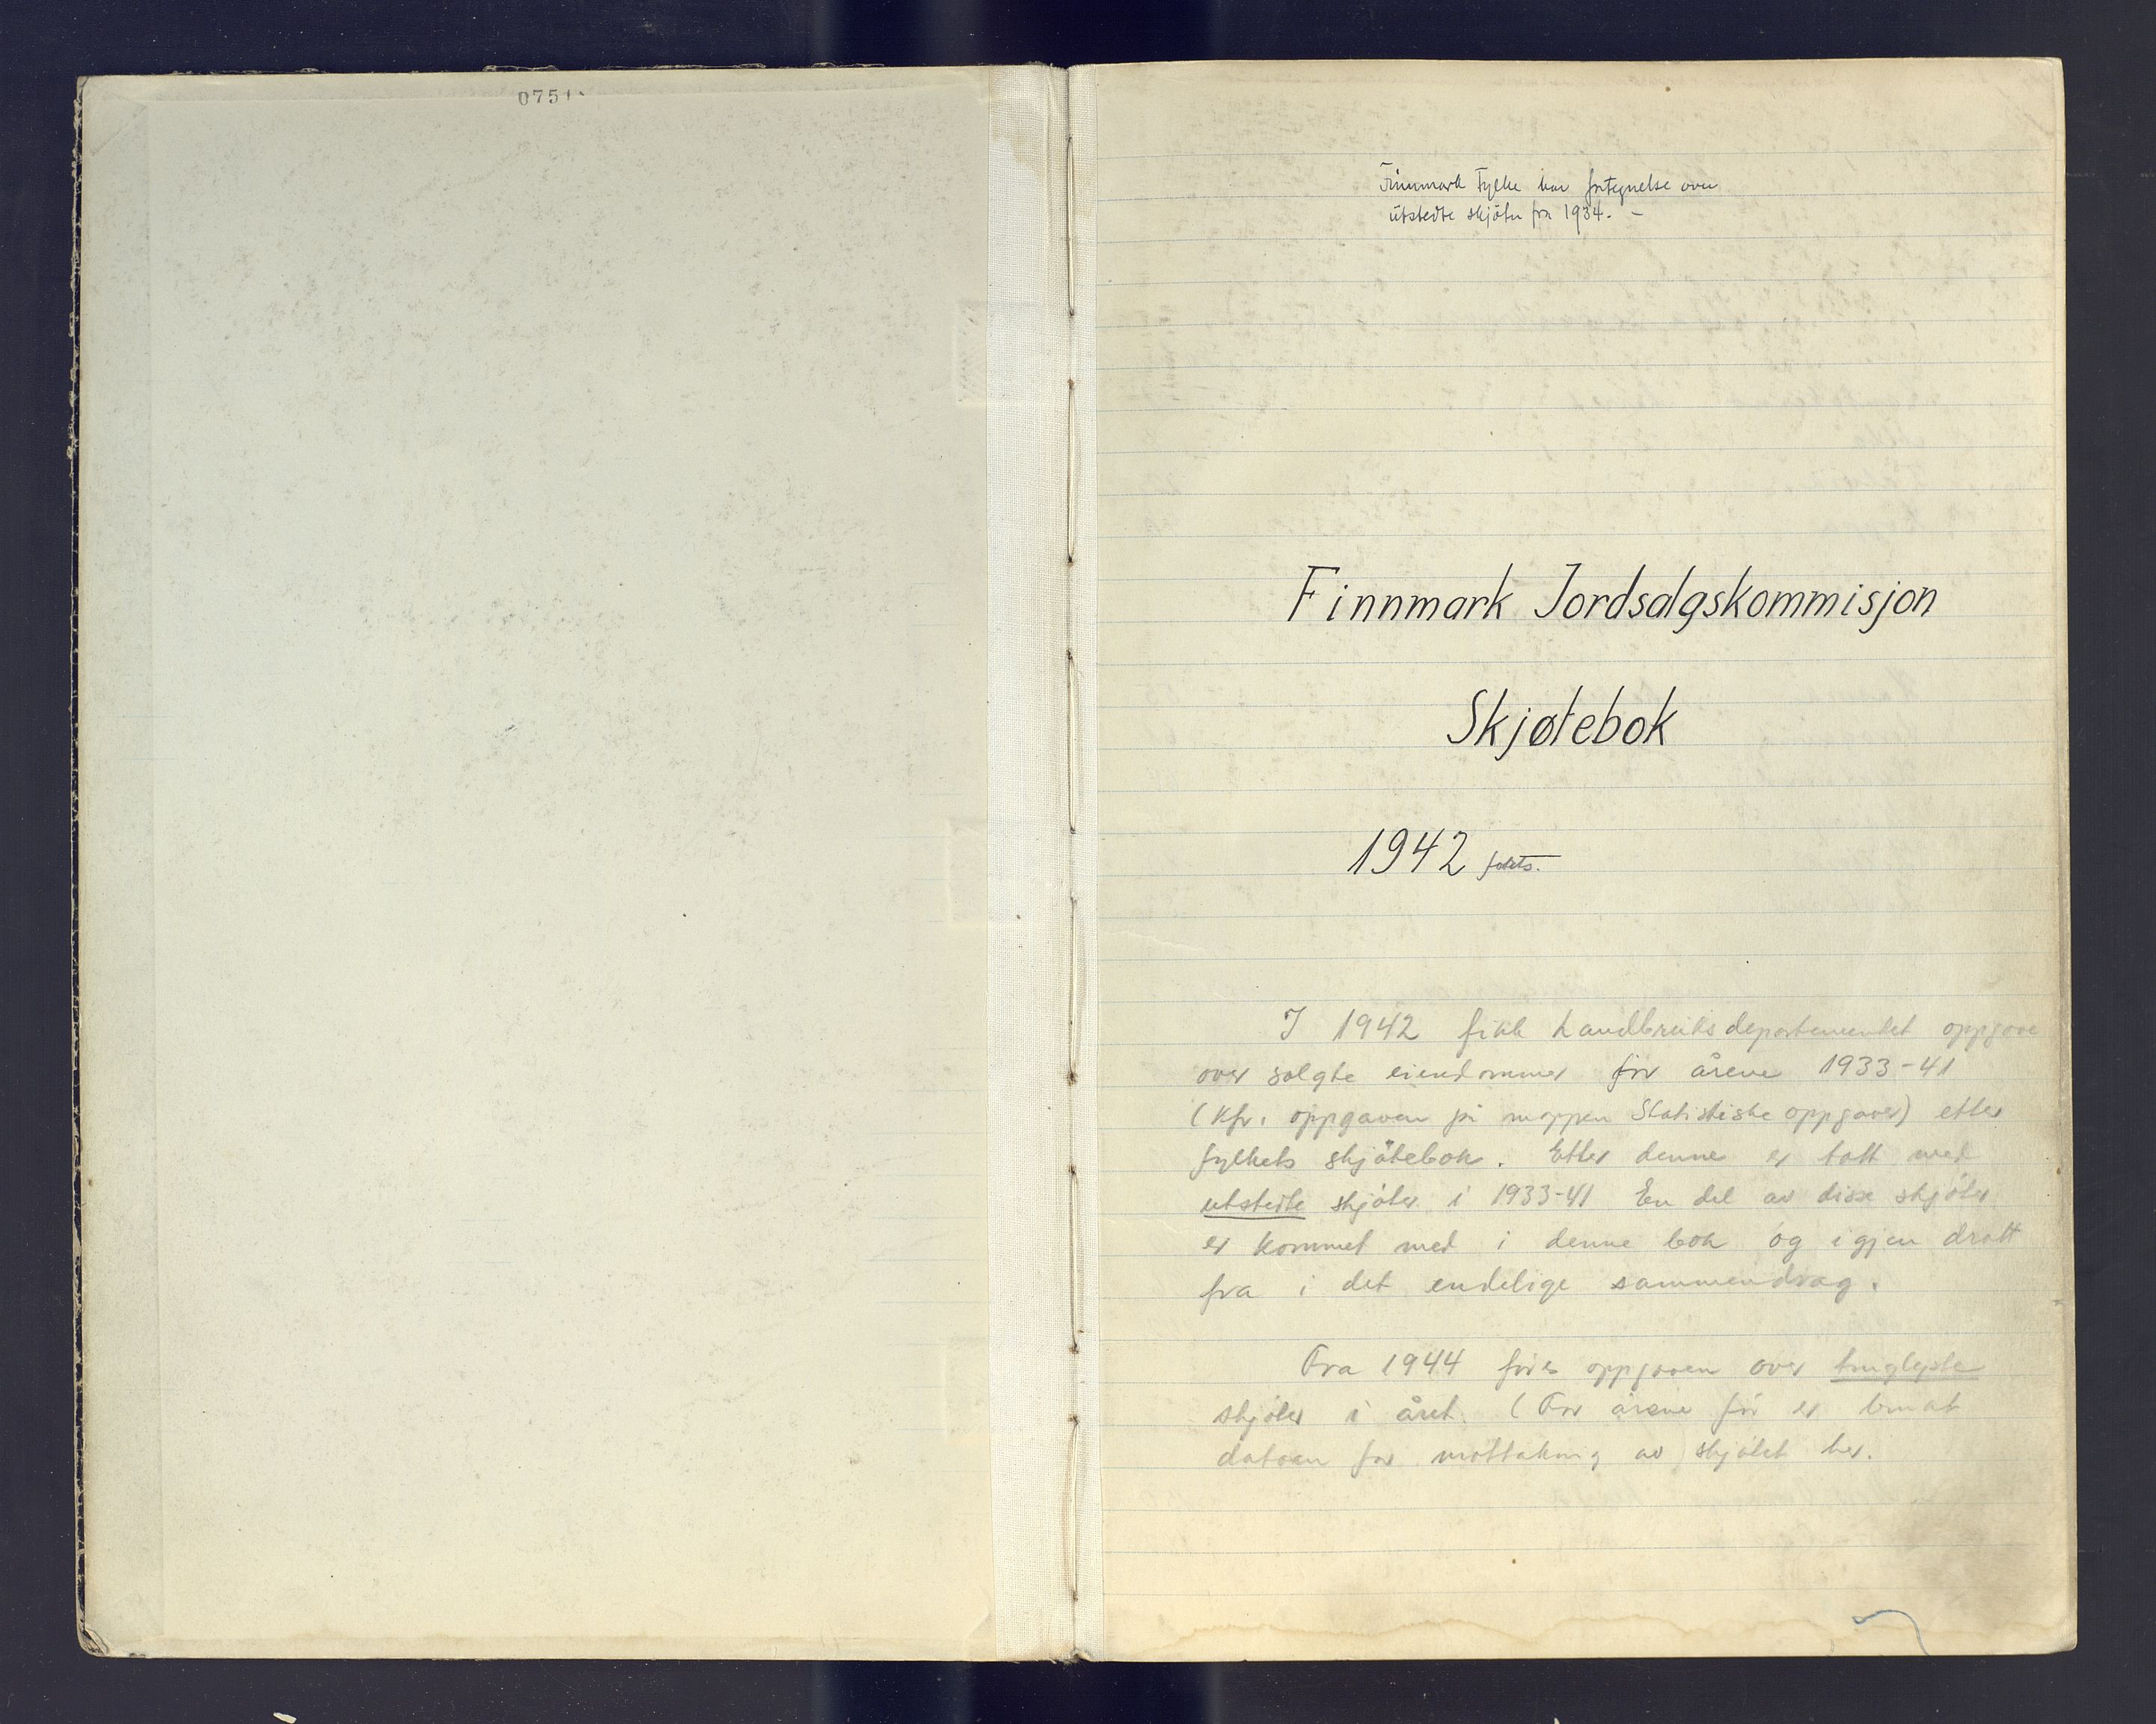 0751
Finnmark Fylke har fortegnelse over
utstedte skjøter fra 1934. -
Finnmark Jordsalgskommisjon
Skjøtebok
1942 forts.
I 1942 fikk Landbruksdepartementet oppgave
over solgte eiendommer for årene 1933-41
(kfr. oppgaven på mappen Statistiske oppgaver) etter
fylkets skjøtebok. Etter denne er tatt med
utstedte skjøter i 1933-41 En del av disse skjøter
er kommet med i denne bok og igjen dratt
fra i det endelige sammendrag.
Fra 1944 føres oppgaven over tinglyste
skjøter i året. (For årene før er brukt
datoen for mottaking av skjøtet her.